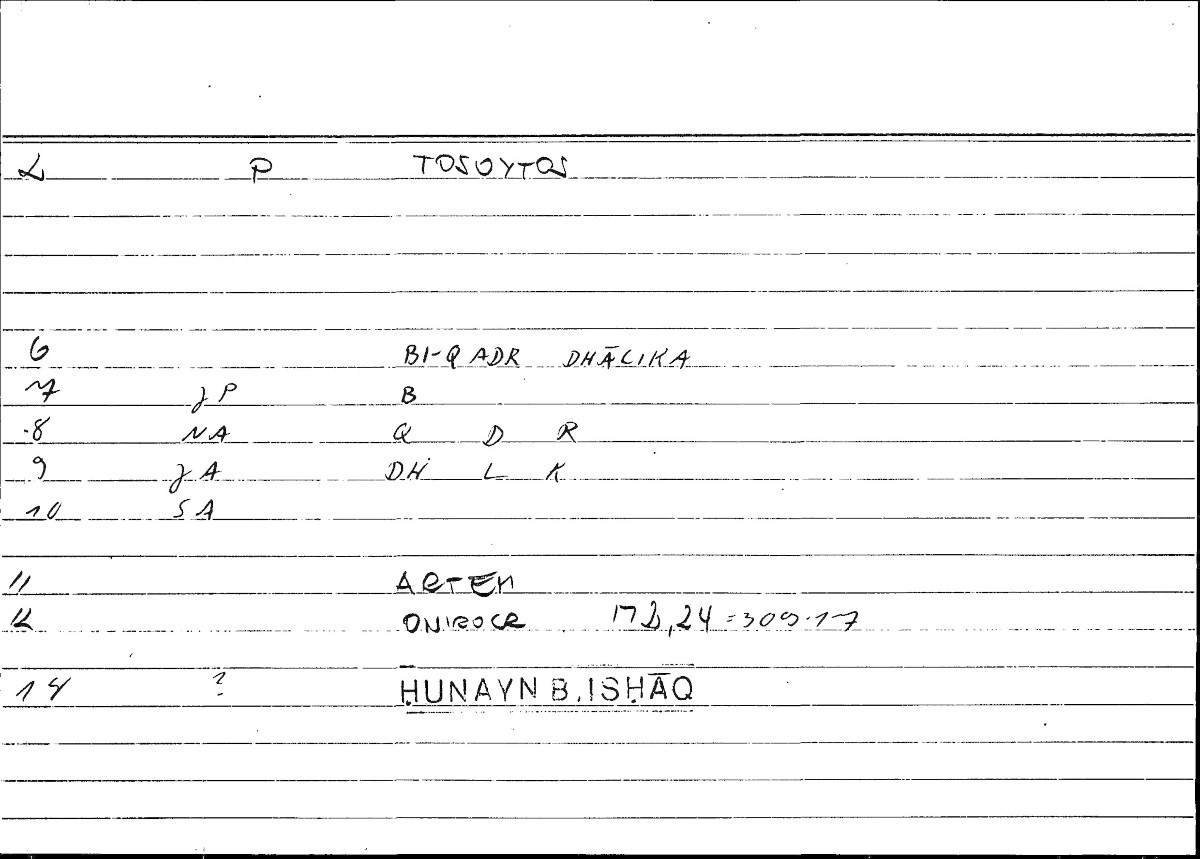 L P TOSOYTOS
6 BI-QADR DHĀLIKA
7 JP B
8 NA Q D R
9 JA DH L K
10 SA
11 ARTEM
12 ONIROCR 172,24=309.17
14 ? ḤUNAYN B. ISḤĀQ